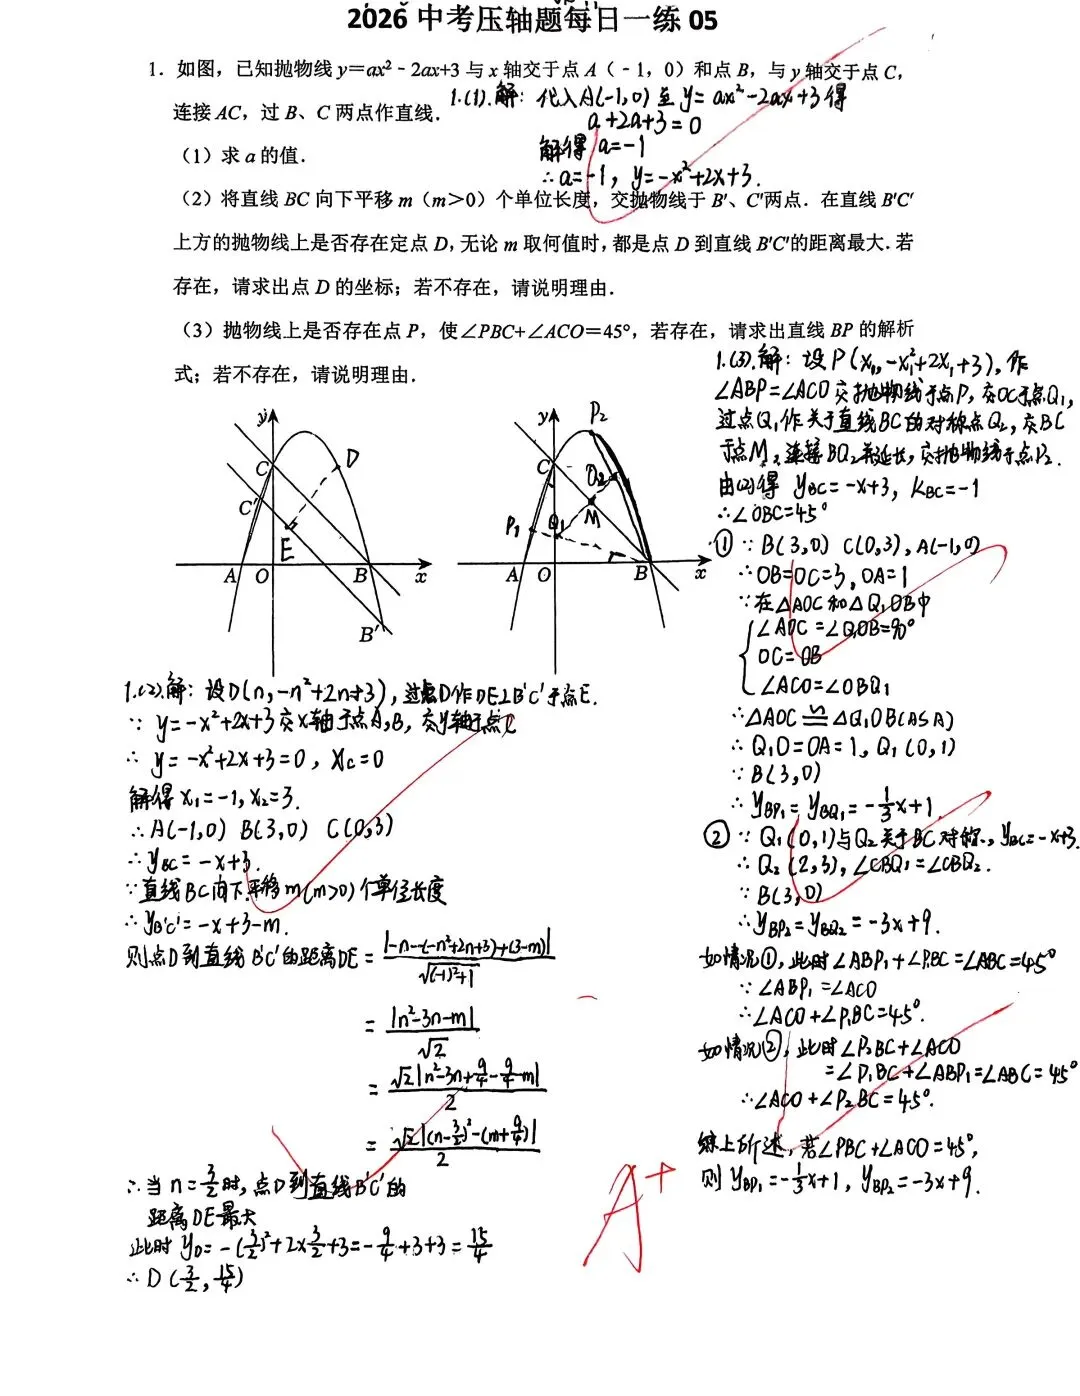 2026 中考压轴题每日一练 05
1. 如图，已知抛物线 y=ax²-2ax+3 与 x 轴交于点 A（-1，0）和点 B，与 y 轴交于点 C，
连接 AC，过 B、C 两点作直线.
1.(1).解：代入A(-1,0)至 y=ax²-2ax+3得
a+2a+3=0
解得 a=-1
∴a=-1，y=-x²+2x+3.
（1）求 a 的值.
（2）将直线 BC 向下平移 m（m＞0）个单位长度，交抛物线于 B′、C′两点. 在直线 B′C′
上方的抛物线上是否存在定点 D，无论 m 取何值时，都是点 D 到直线 B′C′的距离最大. 若
存在，请求出点 D 的坐标；若不存在，请说明理由.
（3）抛物线上是否存在点 P，使∠PBC+∠ACO=45°，若存在，请求出直线 BP 的解析
式；若不存在，请说明理由.
y
C
C′
D
E
A
O
B
x
B′
y
P₂
C
Q₂
M
P₁
Q₁
A
O
B
x
1.(2).解：设D(n,-n²+2n+3)，过点D作DE⊥B′C′于点E.
∵ y=-x²+2x+3交x轴于点A,B，交y轴于点C
∴ y=-x²+2x+3=0，x_C=0
解得 x₁=-1, x₂=3.
∴A(-1,0) B(3,0) C(0,3)
∴y_BC=-x+3.
∵直线BC向下平移m(m>0)个单位长度
∴y_B′C′=-x+3-m.
则点D到直线B′C′的距离DE=|-n-(-n²+2n+3)+(3-m)|/√((-1)²+1)
=|n²-3n-m|/√2
=√2|n²-3n+9/4-9/4-m|/2
=√2|(n-3/2)²-(m+9/4)|/2
∴当 n=3/2时，点D到直线B′C′的
距离DE最大
此时 y_D=-(3/2)²+2×3/2+3=-9/4+3+3=15/4
∴D(3/2，15/4)
1.(3).解：设P(x₁,-x₁²+2x₁+3)，作
∠ABP=∠ACO交抛物线于点P，交OC于点Q₁，
过点Q₁作关于直线BC的对称点Q₂，交BC
于点M，连接BQ₂并延长，交抛物线于点P₂.
由(2)得 y_BC=-x+3，K_BC=-1
∴∠OBC=45°
① ∵B(3,0) C(0,3)，A(-1,0)
∴OB=OC=3，OA=1
∵在△AOC和△Q₁OB中
{∠AOC=∠Q₁OB=90°
OC=OB
∠ACO=∠OBQ₁
∴△AOC≌△Q₁OB(ASA)
∴Q₁O=OA=1，Q₁(0,1)
∵B(3,0)
∴y_BP₁=y_BQ₁=-1/3x+1
② ∵Q₁(0,1)与Q₂关于BC对称，y_BC=-x+3.
∴Q₂(2,3)，∠CBQ₁=∠CBQ₂.
∵B(3,0)
∴y_BP₂=y_BQ₂=-3x+9.
如情况①，此时∠ABP₁+∠P₁BC=∠ABC=45°
∵∠ABP₁=∠ACO
∴∠ACO+∠P₁BC=45°.
如情况②，此时∠P₂BC+∠ACO
=∠P₁BC+∠ABP₁=∠ABC=45°
∴∠ACO+∠P₂BC=45°.
综上所述，若∠PBC+∠ACO=45°，
则 y_BP₁=-1/3x+1，y_BP₂=-3x+9.
A+